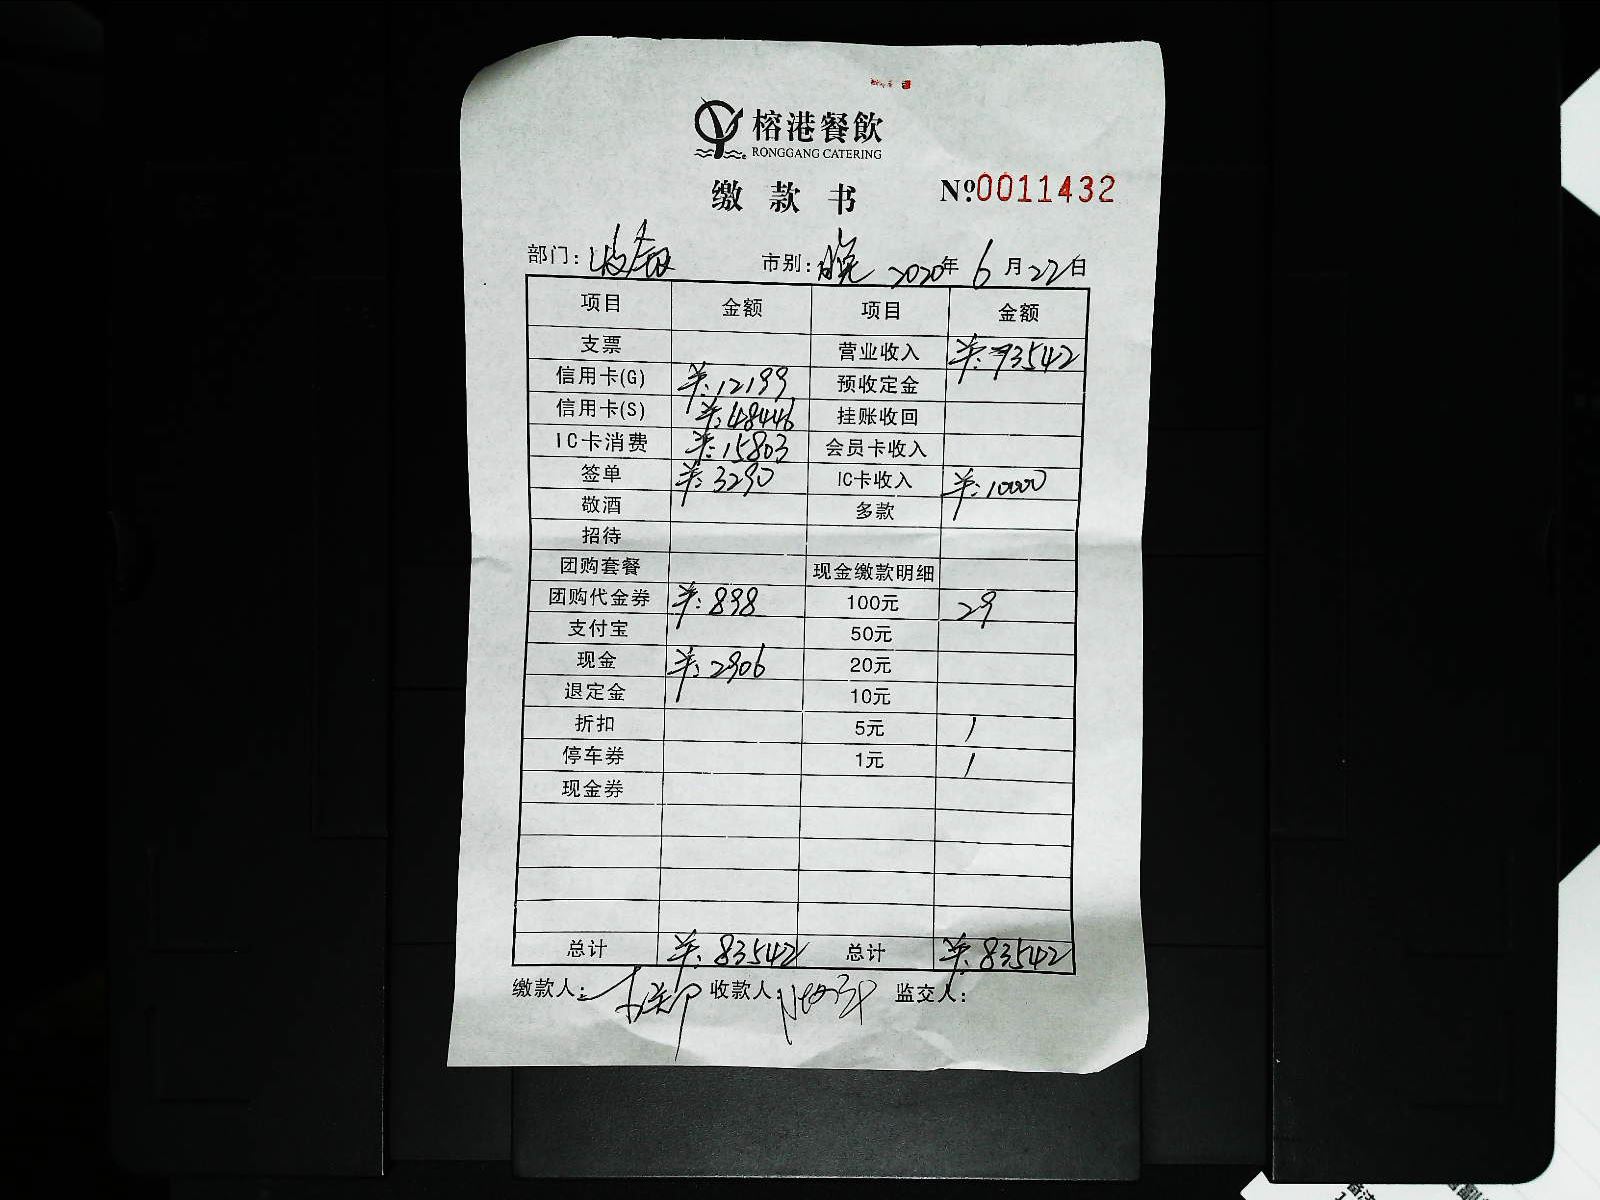 榕港餐飲
RONGGANG CATERING
缴款书 №0011432
部门：收银 市别：晚 2020年6月22日
项目 金额 项目 金额
支票 营业收入 ¥:73542
信用卡(G) ¥:12199 预收定金
信用卡(S) ¥:48446 挂账收回
IC卡消费 ¥:15803 会员卡收入
签单 ¥:3290 IC卡收入 ¥:10000
敬酒 多款
招待
团购套餐 现金缴款明细
团购代金券 ¥:898 100元 29
支付宝 50元
现金 ¥:2906 20元
退定金 10元
折扣 5元 1
停车券 1元 1
现金券
总计 ¥:83542 总计 ¥:83542
缴款人： 收款人： 监交人：